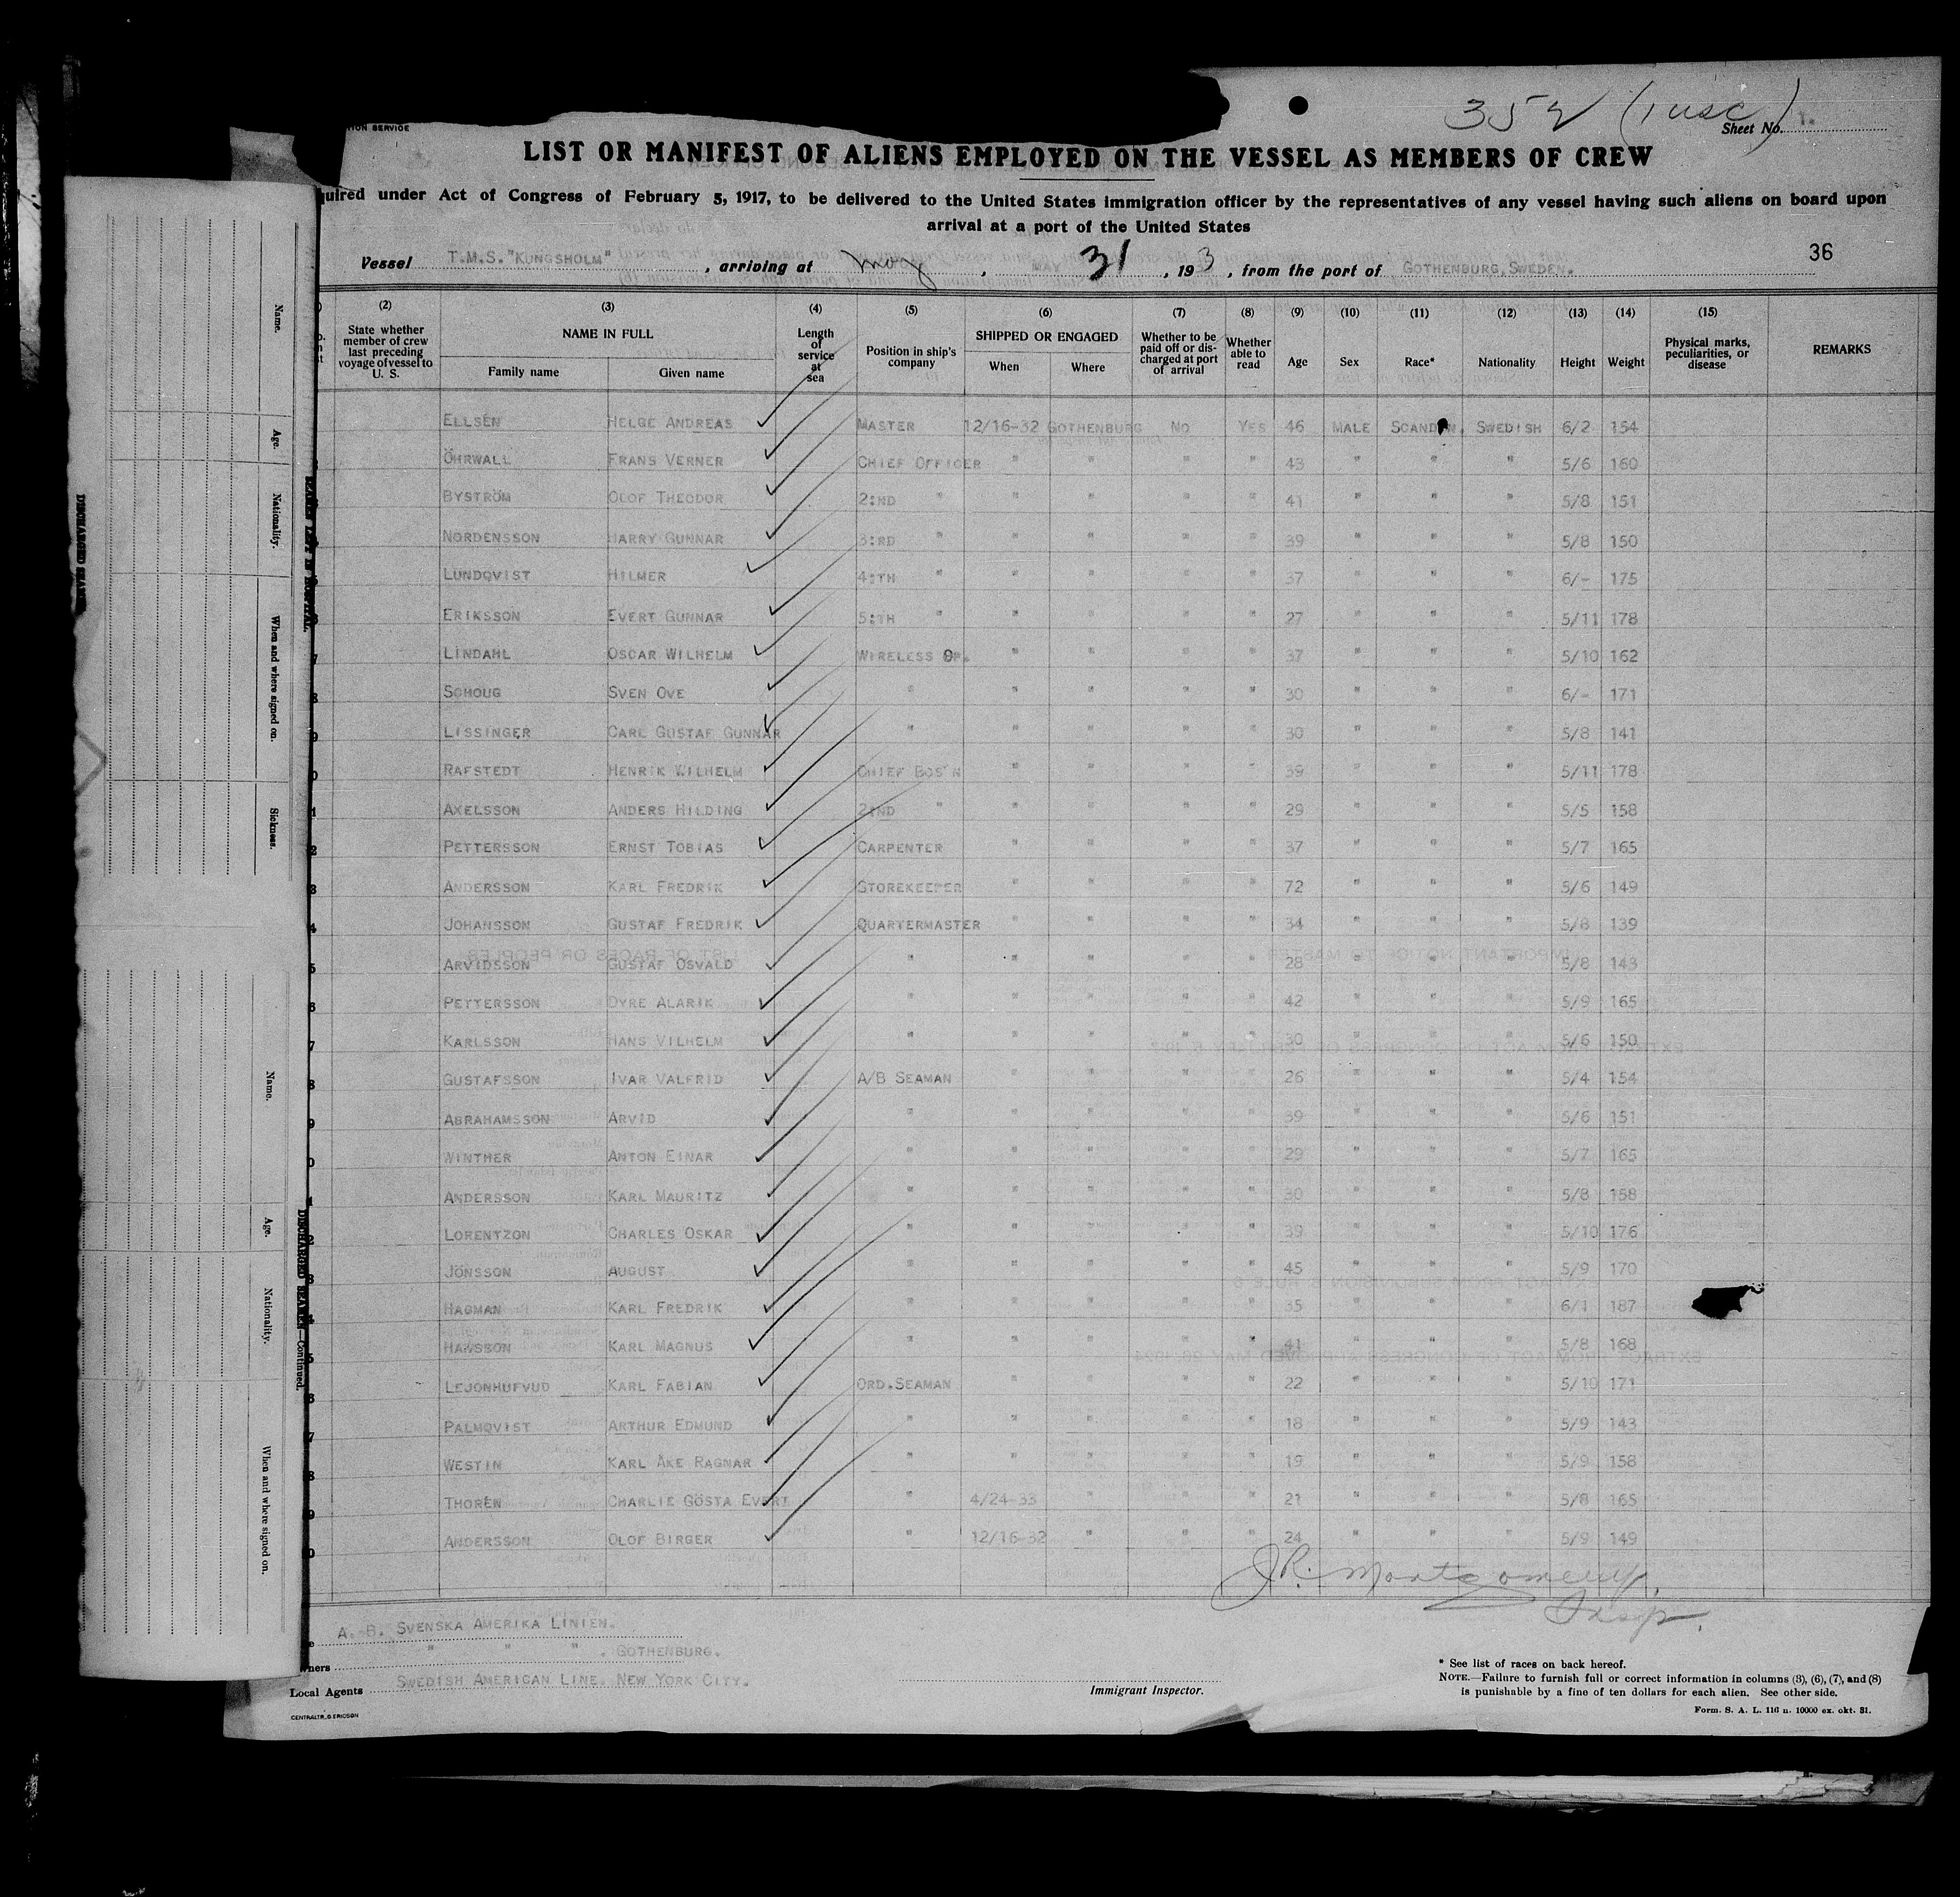 ION SERVICE
352 (1 USC)
Sheet No. 1.
LIST OR MANIFEST OF ALIENS EMPLOYED ON THE VESSEL AS MEMBERS OF CREW
quired under Act of Congress of February 5, 1917, to be delivered to the United States immigration officer by the representatives of any vessel having such aliens on board upon
arrival at a port of the United States
36
Vessel T.M.S. "KUNGSHOLM", arriving at, MAY 31, 193 3, from the port of GOTHENBURG, SWEDEN.
(2) (3) (4) (5) (6) (7) (8) (9) (10) (11) (12) (13) (14) (15)
State whether member of crew last preceding voyage of vessel to U. S. NAME IN FULL Family name Given name Length of service at sea Position in ship's company SHIPPED OR ENGAGED When Where Whether to be paid off or discharged at port of arrival Whether able to read Age Sex Race* Nationality Height Weight Physical marks, peculiarities, or disease REMARKS
ELLSÉN HELGE ANDREAS MASTER 12/16-32 GOTHENBURG NO YES 46 MALE SCANDN. SWEDISH 6/2 154
ÖHRWALL FRANS VERNER CHIEF OFFICER " " " " 43 " " " 5/6 160
BYSTRÖM OLOF THEODOR 2:ND " " " " " 41 " " " 5/8 151
NORDENSSON HARRY GUNNAR 3:RD " " " " " 39 " " " 5/8 150
LUNDQVIST HILMER 4:TH " " " " " 37 " " " 6/- 175
ERIKSSON EVERT GUNNAR 5:TH " " " " " 27 " " " 5/11 178
LINDAHL OSCAR WILHELM WIRELESS OP. " " " " 37 " " " 5/10 162
SCHOUG SVEN OVE " " " " " 30 " " " 6/- 171
LISSINGER CARL GUSTAF GUNNAR " " " " " 30 " " " 5/8 141
RAFSTEDT HENRIK WILHELM CHIEF BOS'N " " " " 39 " " " 5/11 178
AXELSSON ANDERS HILDING 2:ND " " " " " 29 " " " 5/5 158
PETTERSSON ERNST TOBIAS CARPENTER " " " " 37 " " " 5/7 165
ANDERSSON KARL FREDRIK STOREKEEPER " " " " 72 " " " 5/6 149
JOHANSSON GUSTAF FREDRIK QUARTERMASTER " " " " 34 " " " 5/8 139
ARVIDSSON GUSTAF OSVALD " " " " " 28 " " " 5/8 143
PETTERSSON DYRE ALARIK " " " " " 42 " " " 5/9 165
KARLSSON HANS VILHELM " " " " " 30 " " " 5/6 150
GUSTAFSSON IVAR VALFRID A/B SEAMAN " " " " 26 " " " 5/4 154
ABRAHAMSSON ARVID " " " " " 39 " " " 5/6 151
WINTHER ANTON EINAR " " " " " 29 " " " 5/7 165
ANDERSSON KARL MAURITZ " " " " " 30 " " " 5/8 158
LORENTZON CHARLES OSKAR " " " " " 39 " " " 5/10 176
JÖNSSON AUGUST " " " " " 45 " " " 5/9 170
HAGMAN KARL FREDRIK " " " " " 35 " " " 6/1 187
HANSSON KARL MAGNUS " " " " " 41 " " " 5/8 168
LEJONHUFVUD KARL FABIAN ORD.SEAMAN " " " " 22 " " " 5/10 171
PALMQVIST ARTHUR EDMUND " " " " " 18 " " " 5/9 143
WESTIN KARL ÅKE RAGNAR " " " " " 19 " " " 5/9 158
THORÉN CHARLIE GÖSTA EVERT " 4/24-33 " " " 21 " " " 5/8 165
ANDERSSON OLOF BIRGER " 12/16-32 " " " 24 " " " 5/9 149
J.R. Montgomery,
Insp.
A. B. SVENSKA AMERIKA LINIEN.
" " " . GOTHENBURG.
wners
Local Agents SWEDISH AMERICAN LINE. NEW YORK CITY.
CENTRALTR. G. ERICSON
Immigrant Inspector.
* See list of races on back hereof.
NOTE.—Failure to furnish full or correct information in columns (3), (6), (7), and (8)
is punishable by a fine of ten dollars for each alien. See other side.
Form. S. A. L. 116 n. 10000 ex. okt. 31.
Name.
Age.
Nationality.
When and where signed on.
Sickness.
DISCHARGED SEAMEN
SEAMEN LEFT IN HOSPITAL.
Name.
Age.
Nationality.
When and where signed on.
DISCHARGED SEAMEN—Continued.